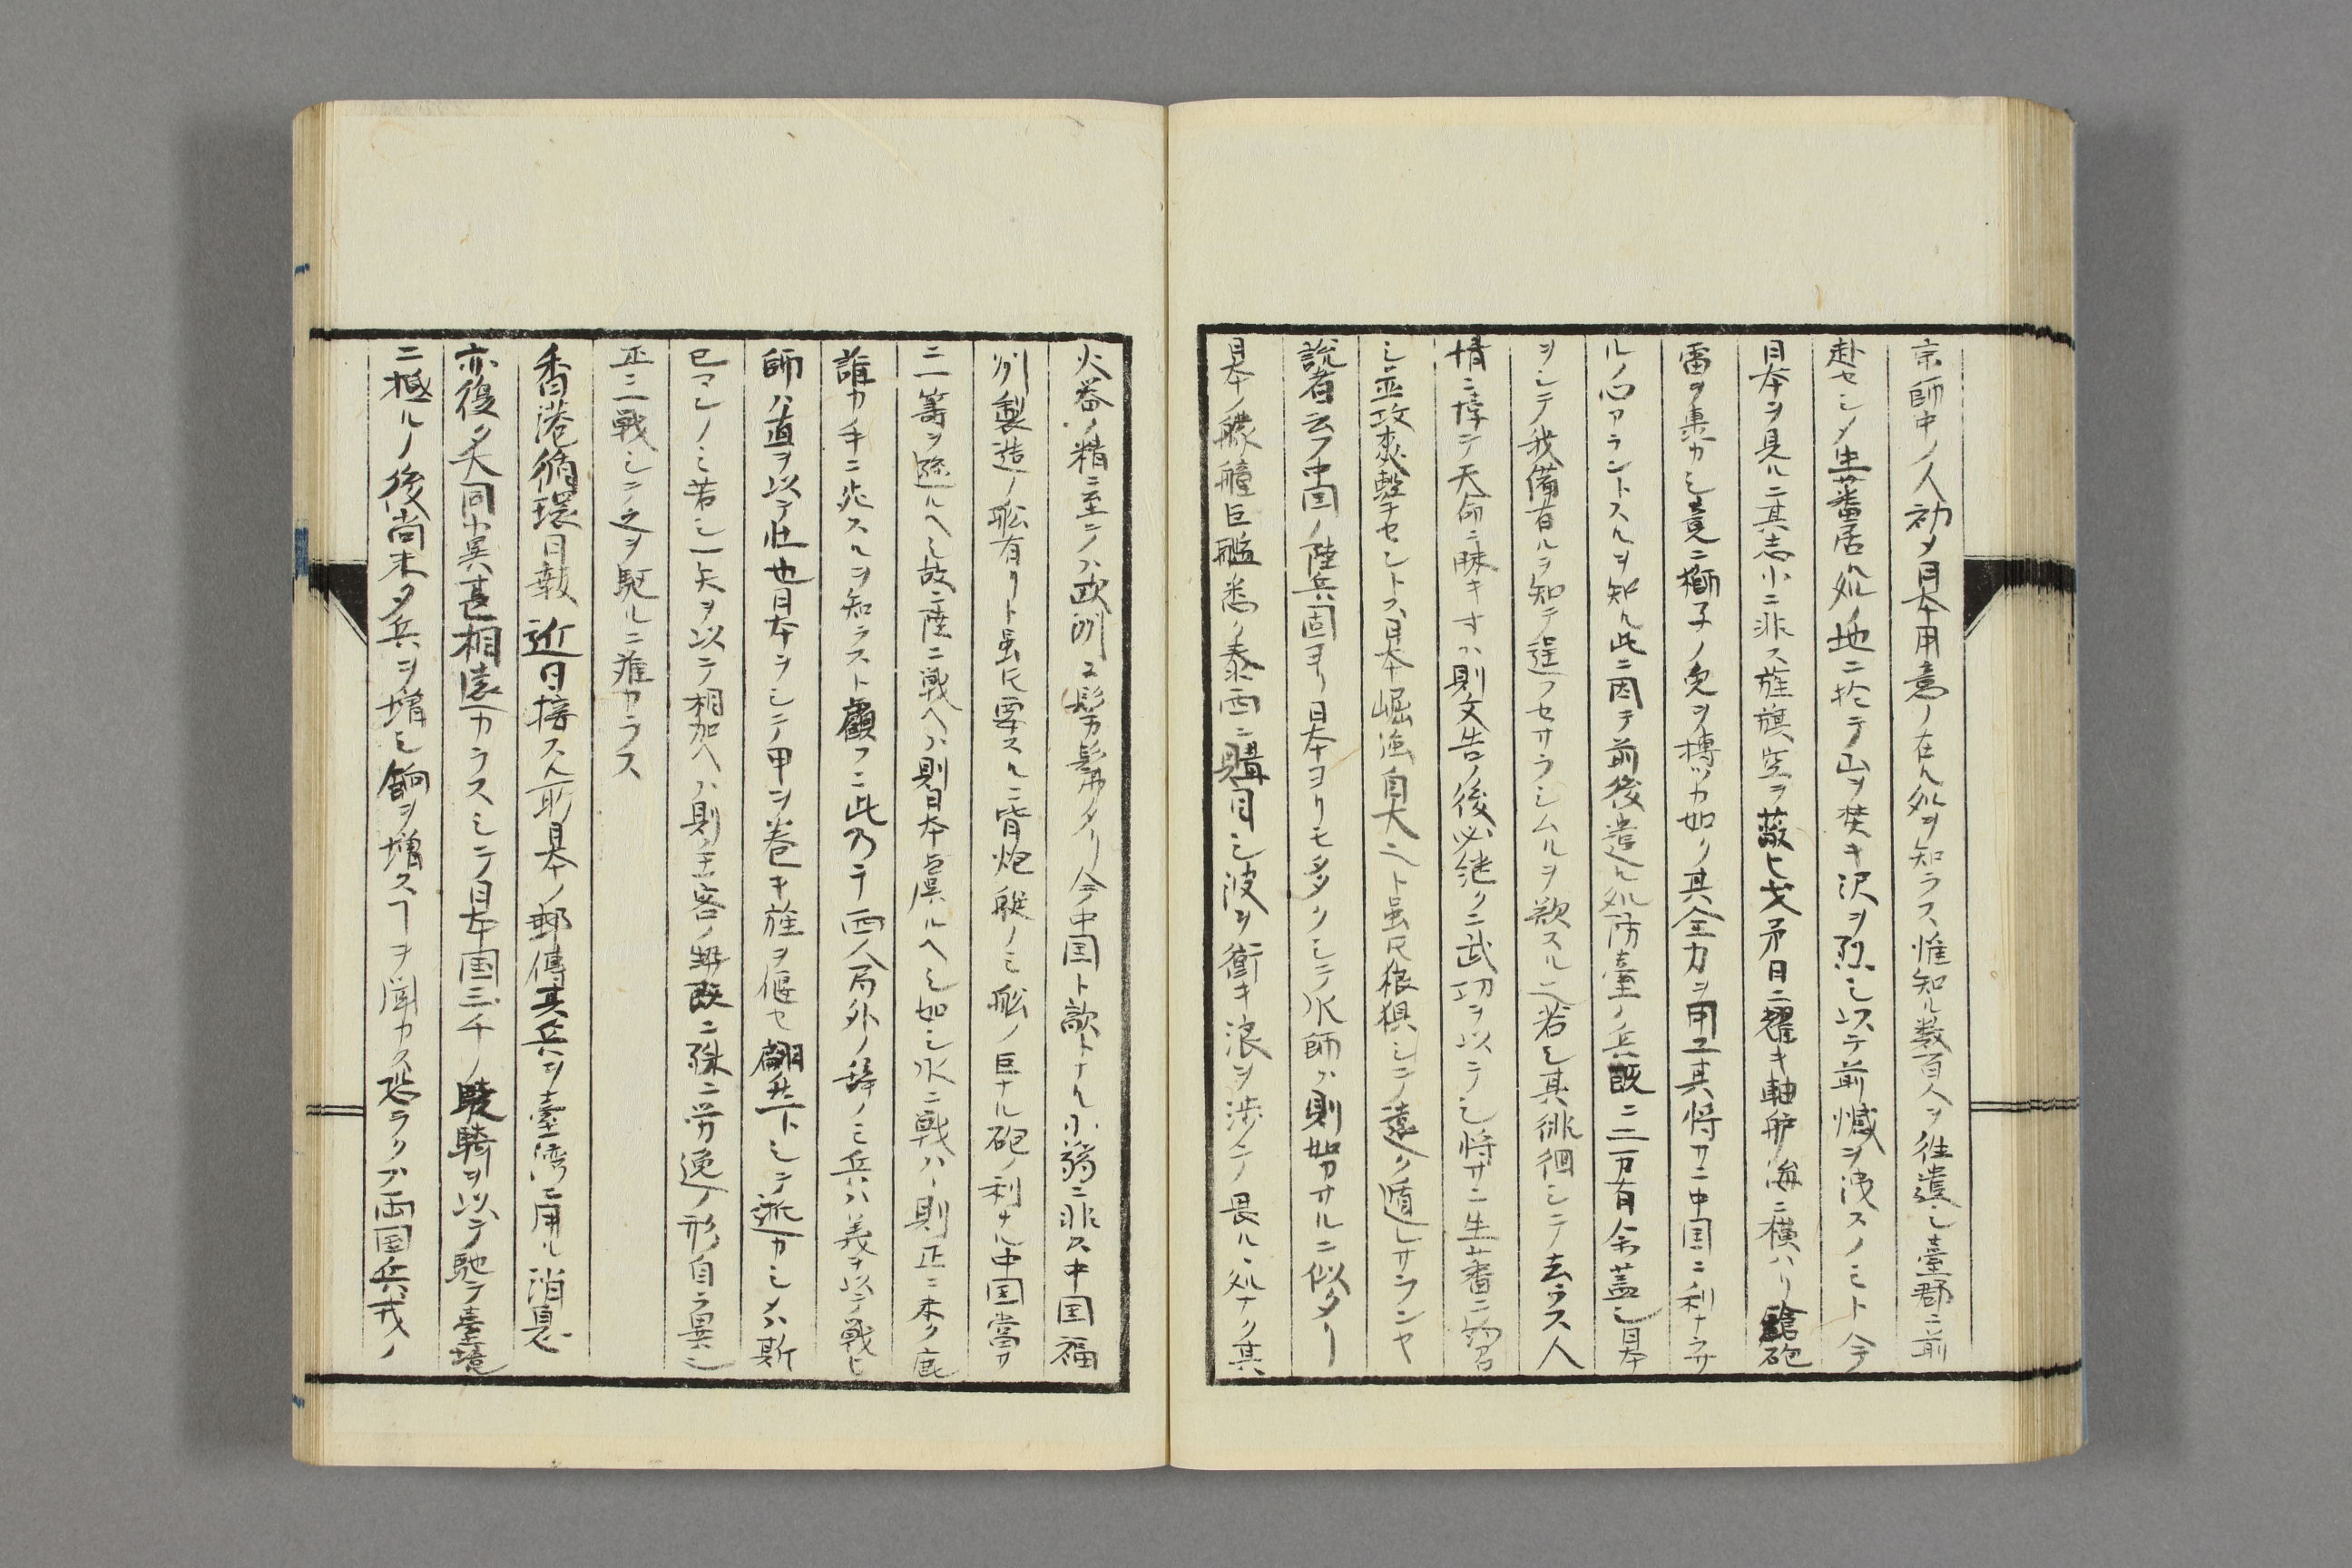 京師中ノ人初メ日本用意ノ在ル処ヲ知ラス惟知ル数百人ヲ往遣シ臺郡ニ前
赴セシメ生蕃居ル処ノ地ニ於テ山ヲ焚キ沢ヲ烈シ以テ前憾ヲ洩スノミト今
日本ヲ見ルニ其志小ニ非ス旌旗空ヲ蔽ヒ戈矛日ニ耀キ軸舮海ニ横ハリ鎗砲
雷ヲ轟カシ竟ニ獅子ノ兔ヲ搏ツカ如ク其全力ヲ用ヱ其将サニ中国ニ利ナラサ
ルノ心アラントスルヲ知ル此ニ因テ前後遣ル処防臺ノ兵既ニ二万有余蓋シ日本
ヲシテ我備有ルヲ知テ逞フセサラシムルヲ欲スル也若シ其徘徊シテ去ラス人
情ニ悖テ天命ニ昧キオハ則文告ノ後必継クニ武功ヲ以テシ将サニ生蕃ニ
シ並攻夾撃セントス日本崛強自大也ト虽𪜈狼狽シテ遠ク遁レサランヤ
説者云フ中国ノ陸兵固ヨリ日本ヨリモ多クシテ水師ハ則如カサルニ似タリ
日本ノ艨艟巨艦悉ク泰西ニ購買シ波ヲ衝キ浪ヲ渉テ畏ル処ナク其
火器ノ精ニ至テハ欧洲ヱ髣髴タリ今中国ト敵トナル小弱ニ非ス中国福
州製造ノ舩有リト虽𪜈要スルニ皆炮艇ノミ舩ノ巨ナル砲ノ利ナル中国當サ
ニ一籌ヲ遜ルヘシ故ニ陸ニ戦ヘハ則日本虞ルヘシ如シ水ニ戦ハヽ則正ニ未タ鹿
誰カ手ニ死スルヲ知ラスト顧フニ此乃チ西人局外ノ辞ノミ兵ハ義ヲ以テ戦ヒ
師ハ直ヲ以テ壮也日本ヲシテ甲ヲ巻キ旌ヲ偃セ翻然トシテ逝カシメハ斯
已マンノミ若シ一矢ヲ以テ相加ヘハ則主客ノ勢既ニ殊ニ労逸ノ形自ラ異ニシ
正ニ一戦シテ之ヲ駆ルニ難カラス
香港循環日報近日接スル所日本ノ郵傳其兵ヲ臺湾ニ用ル消息
亦復タ大同小異甚相遠カラスシテ日本国三千ノ驍騎ヲ以テ馳テ臺境
ニ抵ルノ後尚未タ兵ヲ増シ餉ヲ増スヿヲ聞カス恐ラクハ両国兵戎ノ